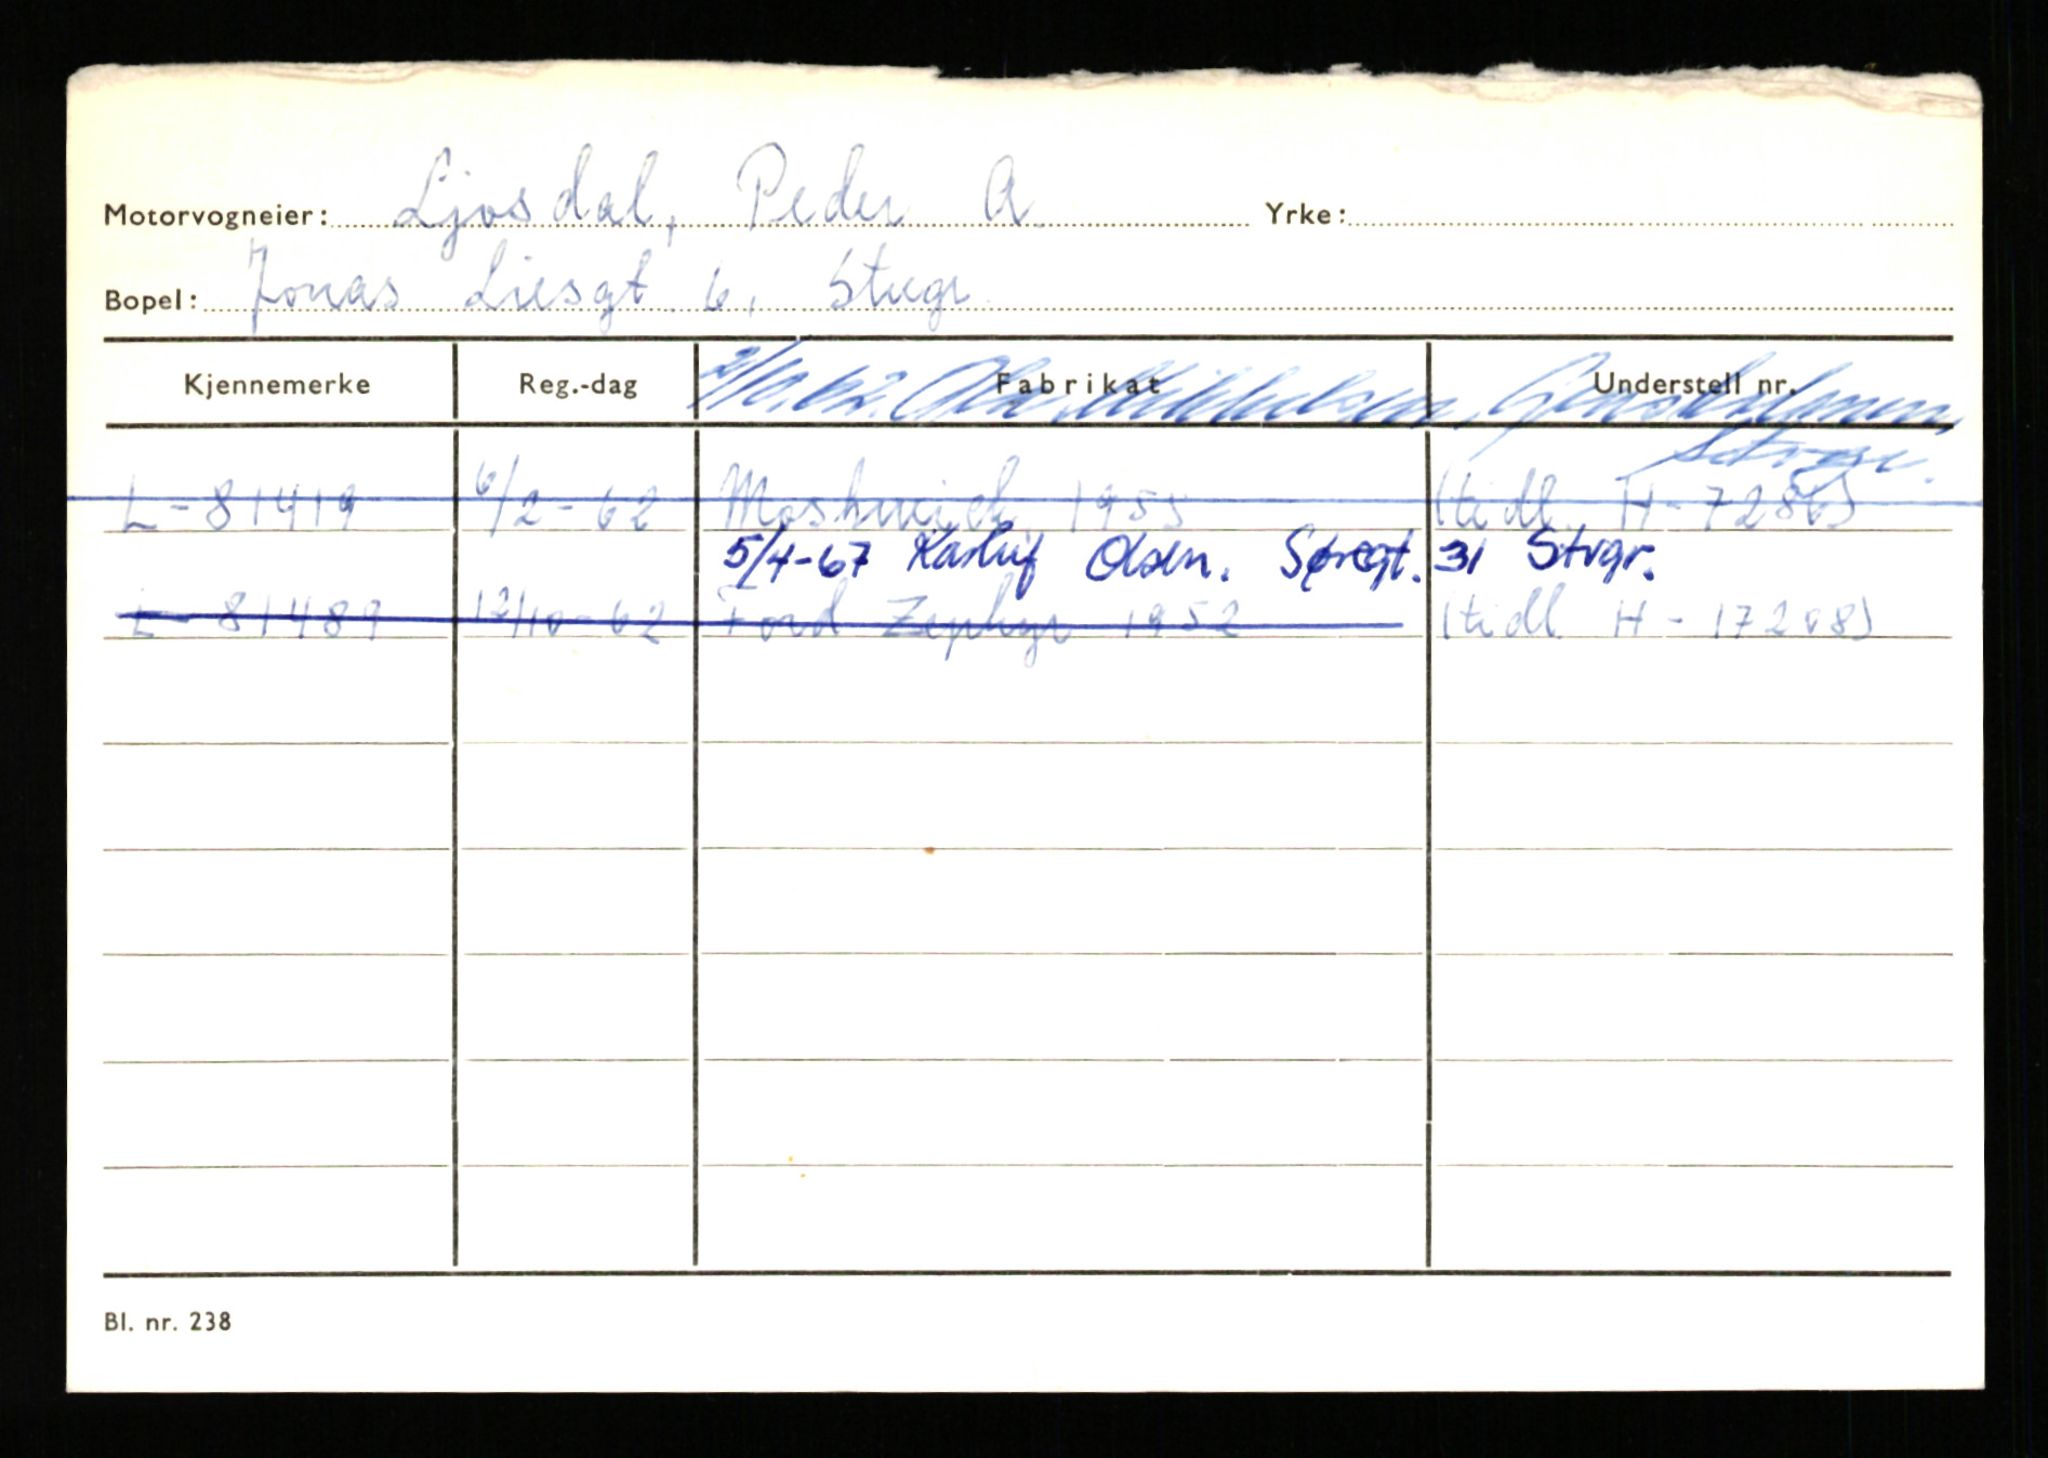 Motorvogneier: Ljosdal, Peder A. Yrke:
Bopel: Jonas Liesgt. 6, Stvgr.
Kjennemerke Reg.-dag Fabrikat Understell nr.
Stvgr.
L-81419 6/2-62 Moskwich 1955 (tidl. H-72863)
5/4-67 Karluf Olsen. Søregt. 31 Stvgr.
L-81489 12/10-62 Ford Zephyr 1952 (tidl. H-17208)
Bl. nr. 238